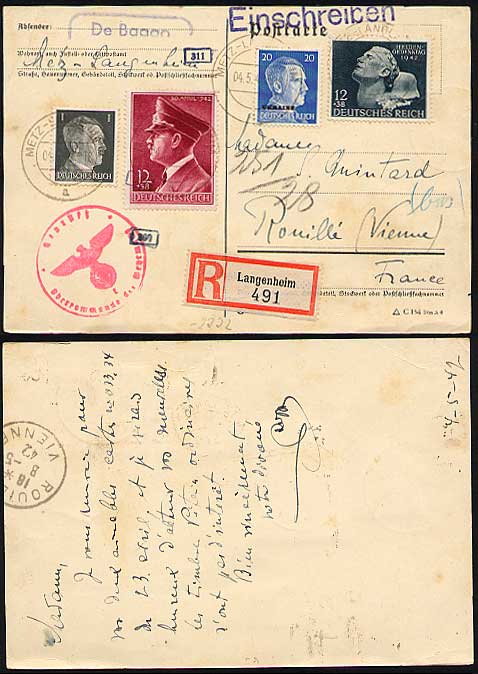 Absender:
De Baaon
Einschreiben
Postkarte
Wohnort, auch Zustell- oder Leitpostamt
311
Metz-Langenheim
Straße, Hausnummer, Gebäudeteil, Stockwerk od. Postschließfachnummer
METZ-LA
04.5.
METZ
04
a
1
DEUTSCHES REICH
20. APRIL 1942
12+38
DEUTSCHES REICH
20 20
UKRAINE
DEUTSCHES REICH
HELDEN-
GEDENKTAG
1942
12
+38
DEUTSCHES REICH
Madame
251
28
S. Mintard
(bus)
Rouillé (Vienne)
France
Geprüft
Oberkommando der Wehrmacht
R
Langenheim
491
Gebäudeteil, Stockwerk oder Postschließfachnummer
C 154
4-5-42
Madame,
Je vous remercie pour
vos deux aimables cartes n° 033, 34
du 23 avril et je serai
heureux d'acheter vos nouvelles.
les timbres Pétain ordinaires
n'ont pas d'intérêt
Bien sincèrement
votre dévoué
ROUILLÉ
18
8 -5
42
VIENNE